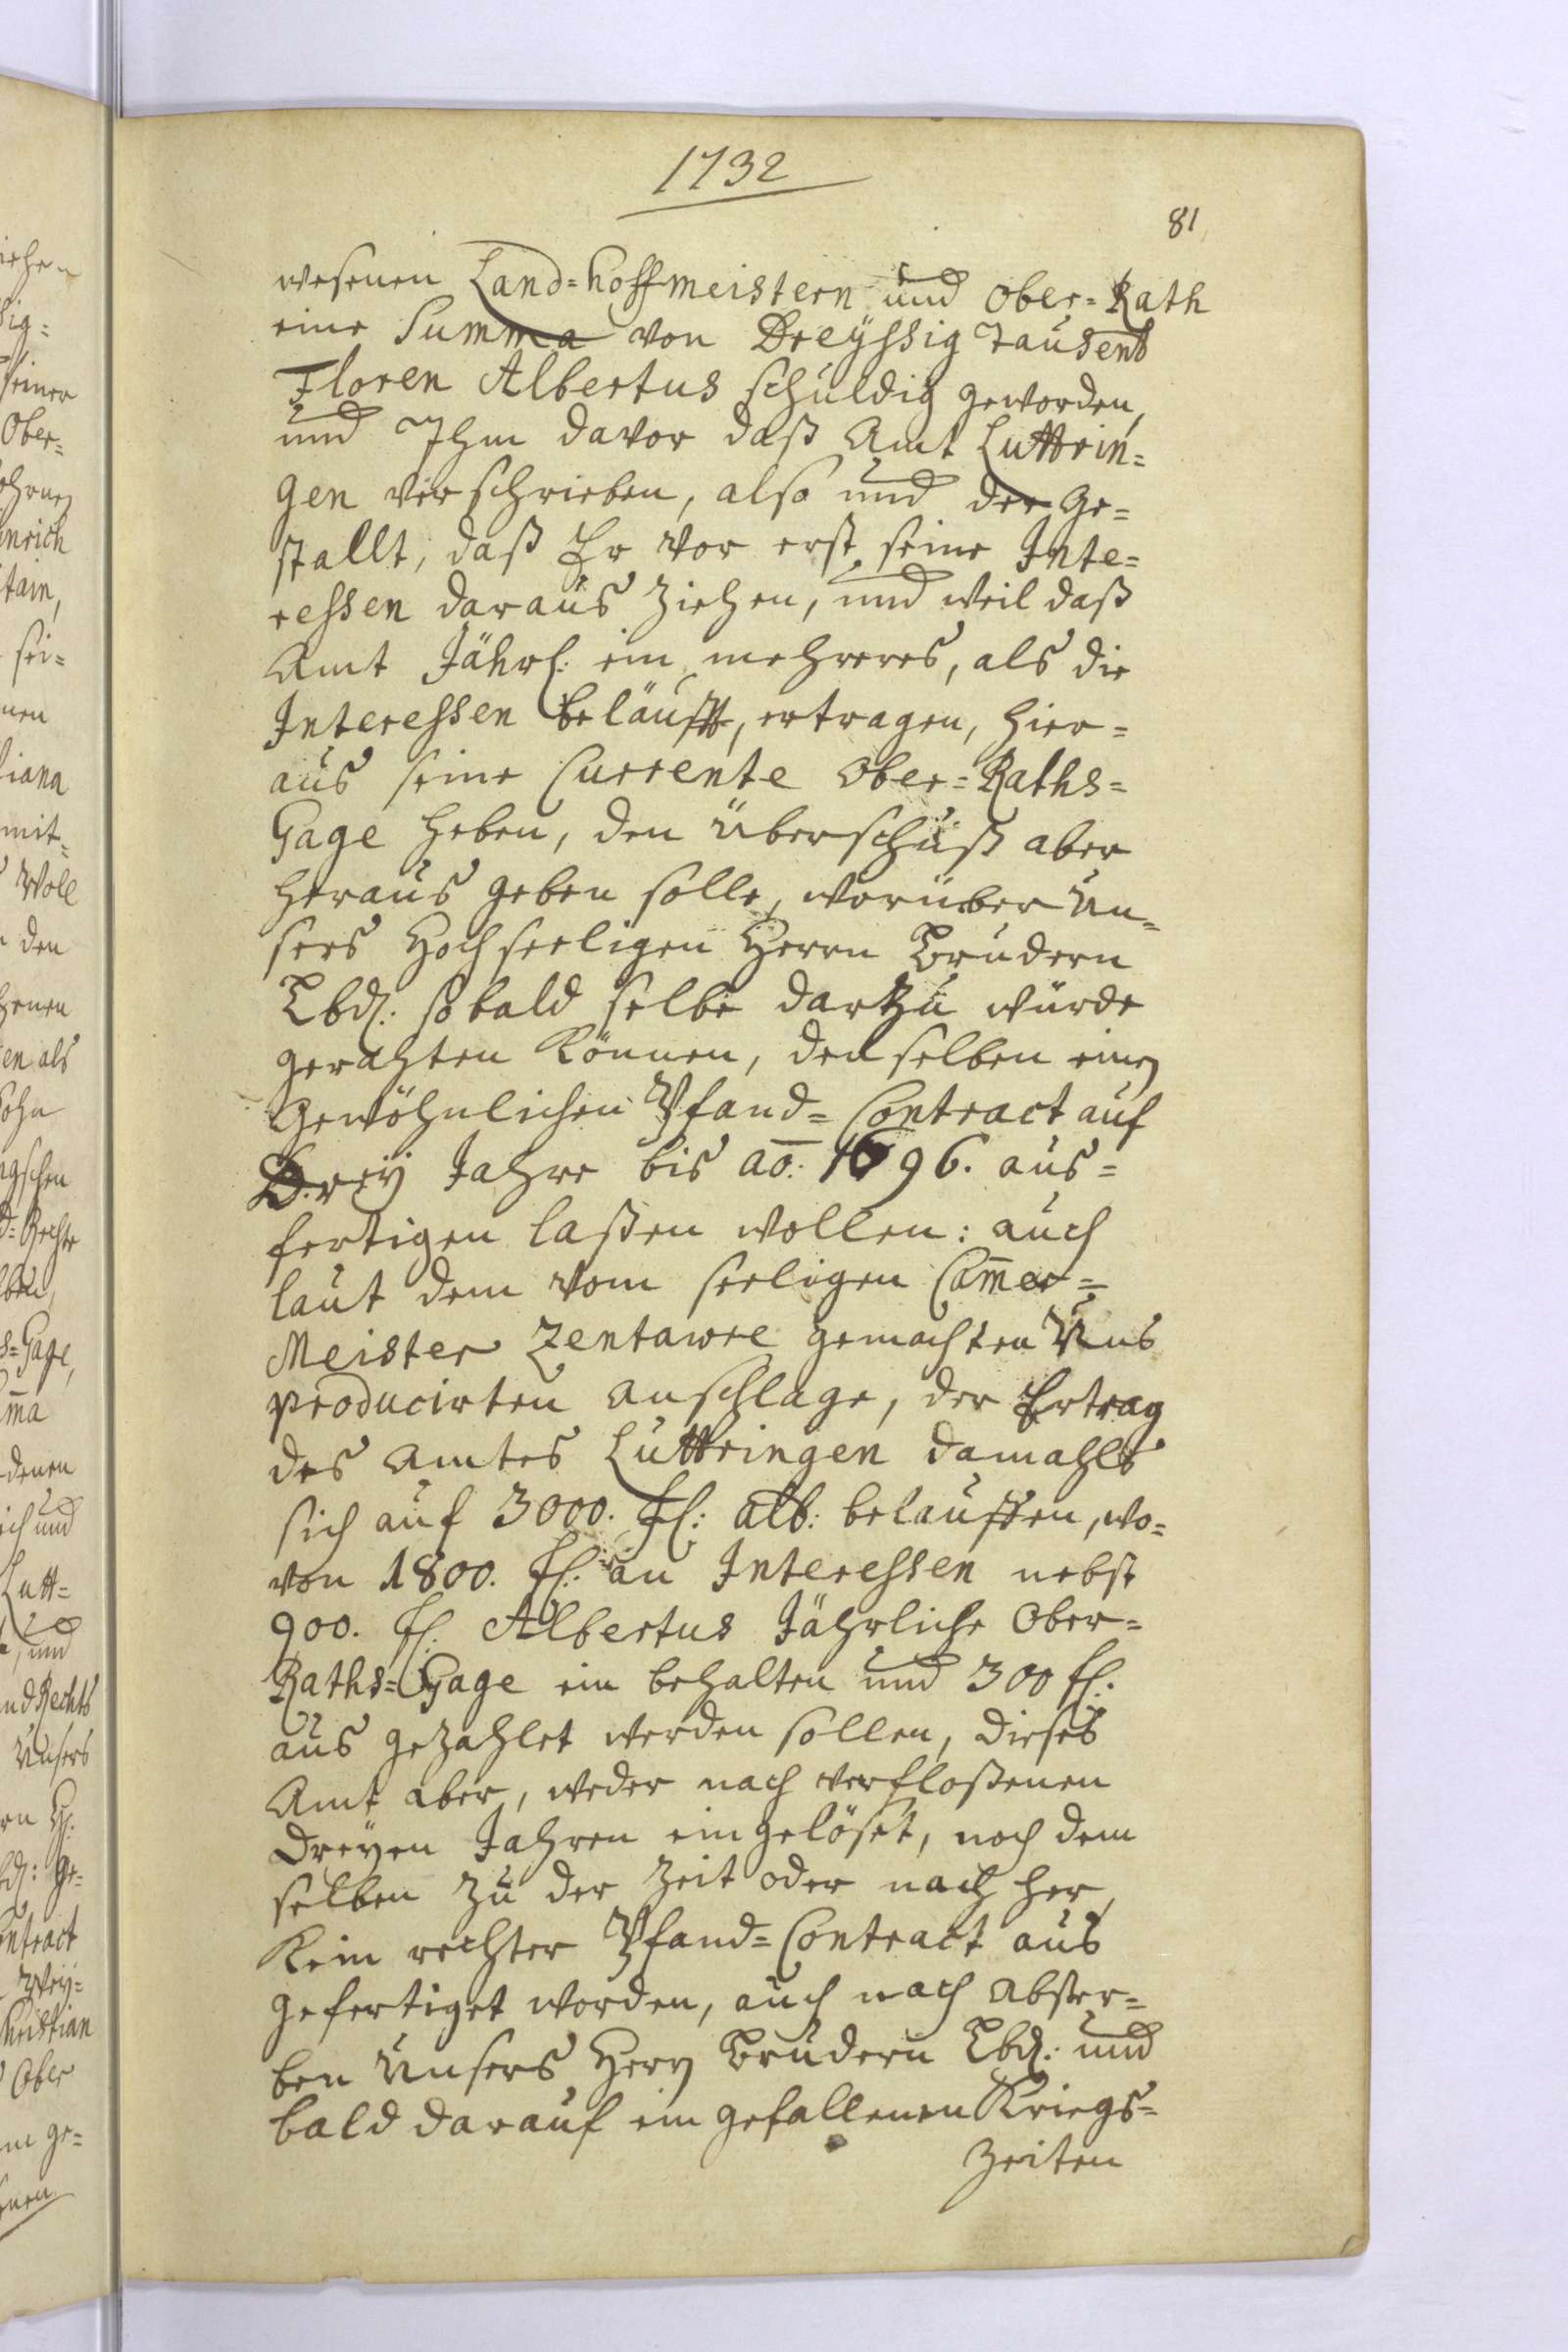 1732
81
wesenen Land=hoffmeistern und Ober=Rath
eine Summa von Dreyßig Tausent
Floren Albertus schuldig geworden,
und Ihm davor daß Amt Luttrin=
gen verschrieben, also und der ge=
stallt, daß Er vor erst seine Inte=
reßen daraus ziehen, und weil daß
Amt Jährl: ein mehreres, als die
Intereßen beläufft, ertragen, hier=
aus seine Currente Ober=Raths=
Gage heben, den überschuß aber
heraus geben solle, worüber Un=
sers Hochseeligen Herrn Brudern
Lbd: so bald selbe dartzu würde
gerahten können, denselben einen
Gewöhnlichen Pfand=Contract auf
Drey Jahre bis ao: 1696. aus=
fertigen laßen wollen: auch
laut dem vom seeligen Cam̄er=
Meister Zentawre gemachten Uns
producirten anschlage, der Ertrag
des Amtes Luttringen damahls
sich auf 3000. fl: alb: belauffen, wo=
von 1800. fl: an Intereßen nebst
900. fl. Albertus Jährliche Ober=
Raths=Gage ein behalten und 300 fl:
aus gezahlet werden sollen, dieses
Amt aber, weder nach verfloßenen
Dreyen Jahren eingelöset, noch dem
selben zu der Zeit oder nach her,
Kein rechter Pfand=Contract aus
gefertiget worden, auch nach abster=
ben Unsers Hern Brudern Lbd: und
bald darauf ein gefallenen Kriegs=
Zeiten